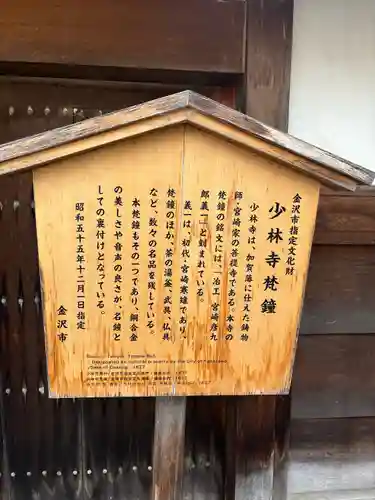 金沢市指定文化財
少林寺梵鐘
少林寺は、加賀藤に仕えた鋳物
師・宮崎家の菩提寺である。本寺の
梵鐘の銘文には、「冶工 宮崎彦九
郎義一」と刻まれている。
義一は、初代・宮崎寒雉であり、
梵鐘のほか、茶の湯釜、武具、仏具
など、数々の名品を残している。
本梵鐘もその一つであり、銅合金
の美しさや音声の良さが、名鐘と
しての裏付けとなっている。
昭和五十五年十二月一日指定
金沢市